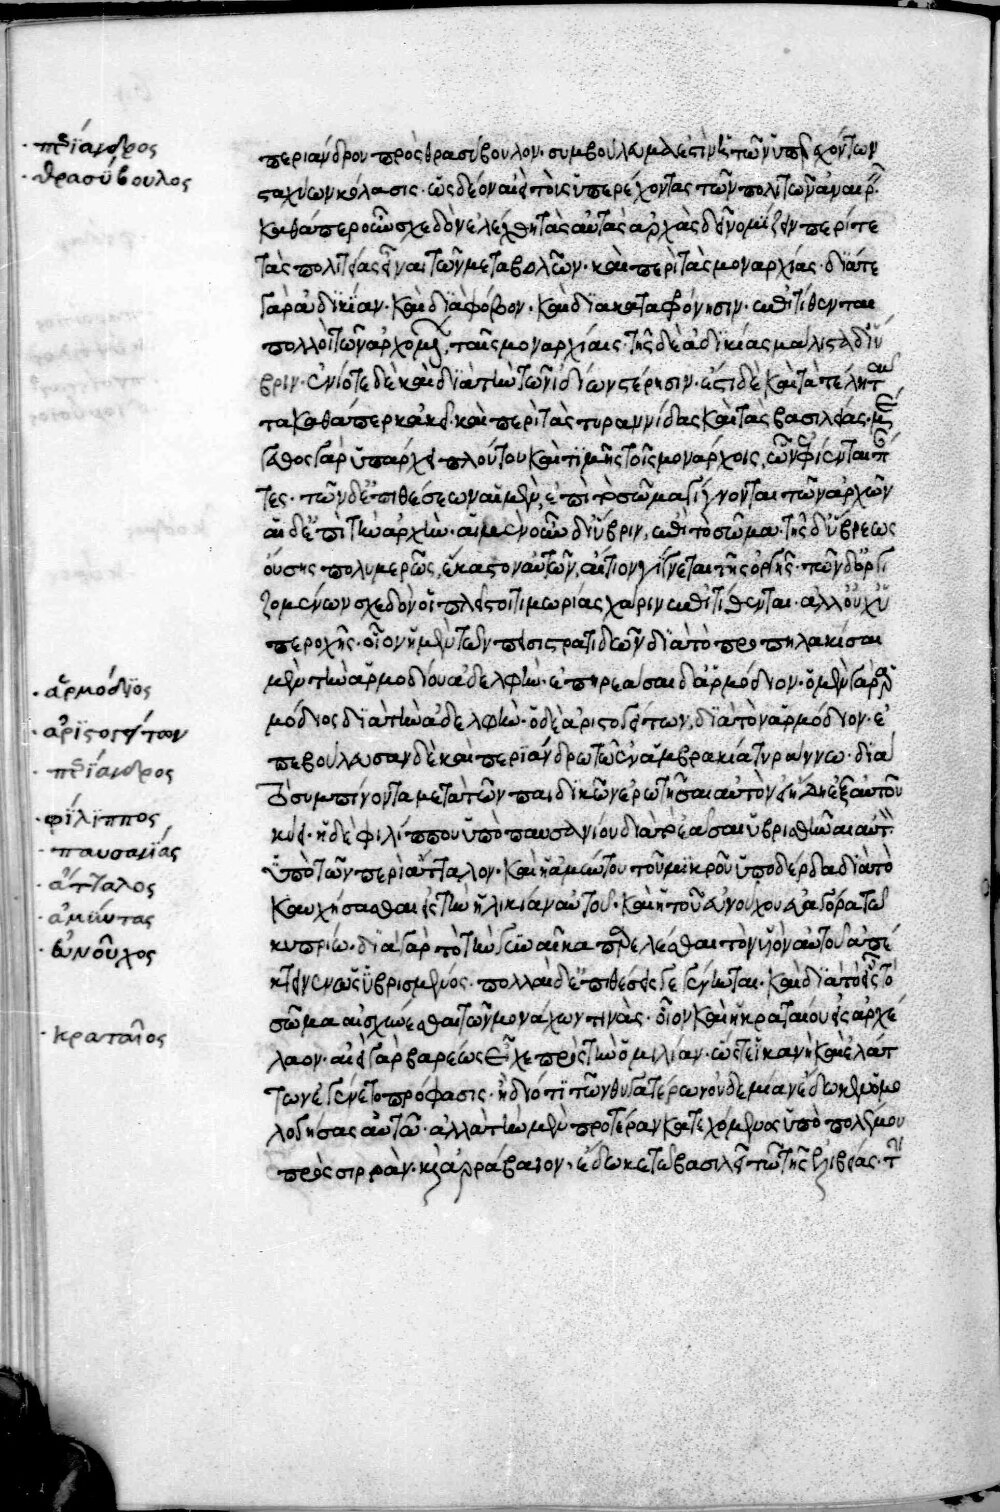 περιάνδρος
θρασύβουλος
ἁρμόδϊος
ἀρϊστογείτων
περϊάνδρος
φίλϊππος
παυσανΐας
ἄτταλος
ἀμύντας
εὐνοῦχος
κραταῖος
περιάνδρου πρὸς θρασύβουλον· συμβούλευμα ἐστὶν ἡ τῶν ὑπερεχόντων
σταχύων κόλασις· ὡς δέον αἰεὶ τοὺς ὑπερέχοντας τῶν πολιτῶν ἀναιρεῖν·
καθάπερ οὖν σχεδὸν ἐλέχθη τὰς αὐτὰς ἀρχὰς δεῖ νομίζειν περί τε
τὰς πολιτείας εἶναι τῶν μεταβολῶν· καὶ περὶ τὰς μοναρχίας· διά τε
γὰρ ἀδικίαν· καὶ διὰ φόβον· καὶ διὰ καταφρόνησιν· ἐπιτίθενται
πολλοὶ τῶν ἀρχομένων, ταῖς μοναρχίαις· τῆς δὲ ἀδικίας μάλιστα δι᾽ ὕ
βριν· ἐνίοτε δὲ καὶ διὰ τὴν τῶν ἰδίων στέρησιν· ἔστι δὲ καὶ τὰ τέλη ταῦ
τα καθάπερ κἀκεῖ· καὶ περὶ τὰς τυραννίδας καὶ τὰς βασιλείας· μέ
γεθος γὰρ ὑπάρχει πλούτου καὶ τιμῆς τοῖς μονάρχοις, ὧν ἐφίενται πάν
τες· τῶν δὲ ἐπιθέσεων αἱ μὲν, ἐπὶ τὸ σῶμα γίγνονται τῶν ἀρχόντων
αἱ δὲ ἐπὶ τὴν ἀρχήν· αἱ μὲν οὖν δι᾽ ὕβριν, ἐπὶ τὸ σῶμα· τῆς δ᾽ ὕβρεως
οὔσης πολυμερῶς, ἕκαστον αὐτῶν, αἴτιον γίγνεται τῆς ὀργῆς· τῶν δ᾽ ὀργι
ζομένων σχεδὸν οἱ πλεῖστοι τιμωρίας χάριν ἐπιτίθενται· ἀλλ᾽ οὐχ ὑ
περοχῆς· οἷον ἡ μὲν τῶν πεισιστρατιδῶν διὰ τὸ προπηλακίσαι
μὲν τὴν ἁρμοδίου ἀδελφὴν· ἐπηρεάσαι δ᾽ ἁρμόδιον· ὁ μὲν γὰρ ἁρ
μόδιος διὰ τὴν ἀδελφὴν· ὁ δὲ ἀριστογείτων, διὰ τὸν ἁρμόδιον· ἐ
πεβούλευσαν δὲ καὶ περιάνδρῳ τῷ ἐν ἀμβρακίᾳ τυράννῳ· διὰ
τὸ συμπίνοντα μετὰ τῶν παιδικῶν ἐρωτῆσαι αὐτὸν εἰ ἤδη ἐξ αὐτοῦ
κύει· ἡ δὲ φιλίππου ὑπὸ παυσανίου διὰ τὸ ἐᾶσαι ὑβρισθῆναι αὐτὸν
ὑπὸ τῶν περὶ ἄτταλον· καὶ ἡ ἀμύντου τοῦ μικροῦ ὑπὸ δέρδα διὰ τὸ
καυχήσασθαι εἰς τὴν ἡλικίαν αὐτοῦ· καὶ ἡ τοῦ εὐνούχου εὐαγόρᾳ τῷ
κυπρίῳ· διὰ γὰρ τὸ τὴν γυναῖκα παρελέσθαι τὸν υἱὸν αὐτοῦ ἀπέ
κτεινεν ὡς ὑβρισμένος· πολλαὶ δὲ ἐπιθέσεις γεγένηνται· καὶ διὰ τὸ εἰς τὸ
σῶμα αἰσχύνεσθαι τῶν μονάρχων τινὰς· οἷον καὶ ἡ κραταίου εἰς ἀρχέ
λαον· αἰεὶ γὰρ βαρέως εἶχε πρὸς τὴν ὁμιλίαν· ὥστε ἱκανὴ καὶ ἐλάτ
των ἐγένετο πρόφασις· ἢ διότι τῶν θυγατέρων οὐδεμίαν ἔδωκεν ὁμο
λογήσας αὐτῷ· ἀλλὰ τὴν μὲν προτέραν κατεχόμενος ὑπὸ πολέμου
πρὸς σιρράν· καὶ ἀρράβαιον, ἔδωκε τῷ βασιλεῖ τῷ τῆς ἐλιβείας· τὴν